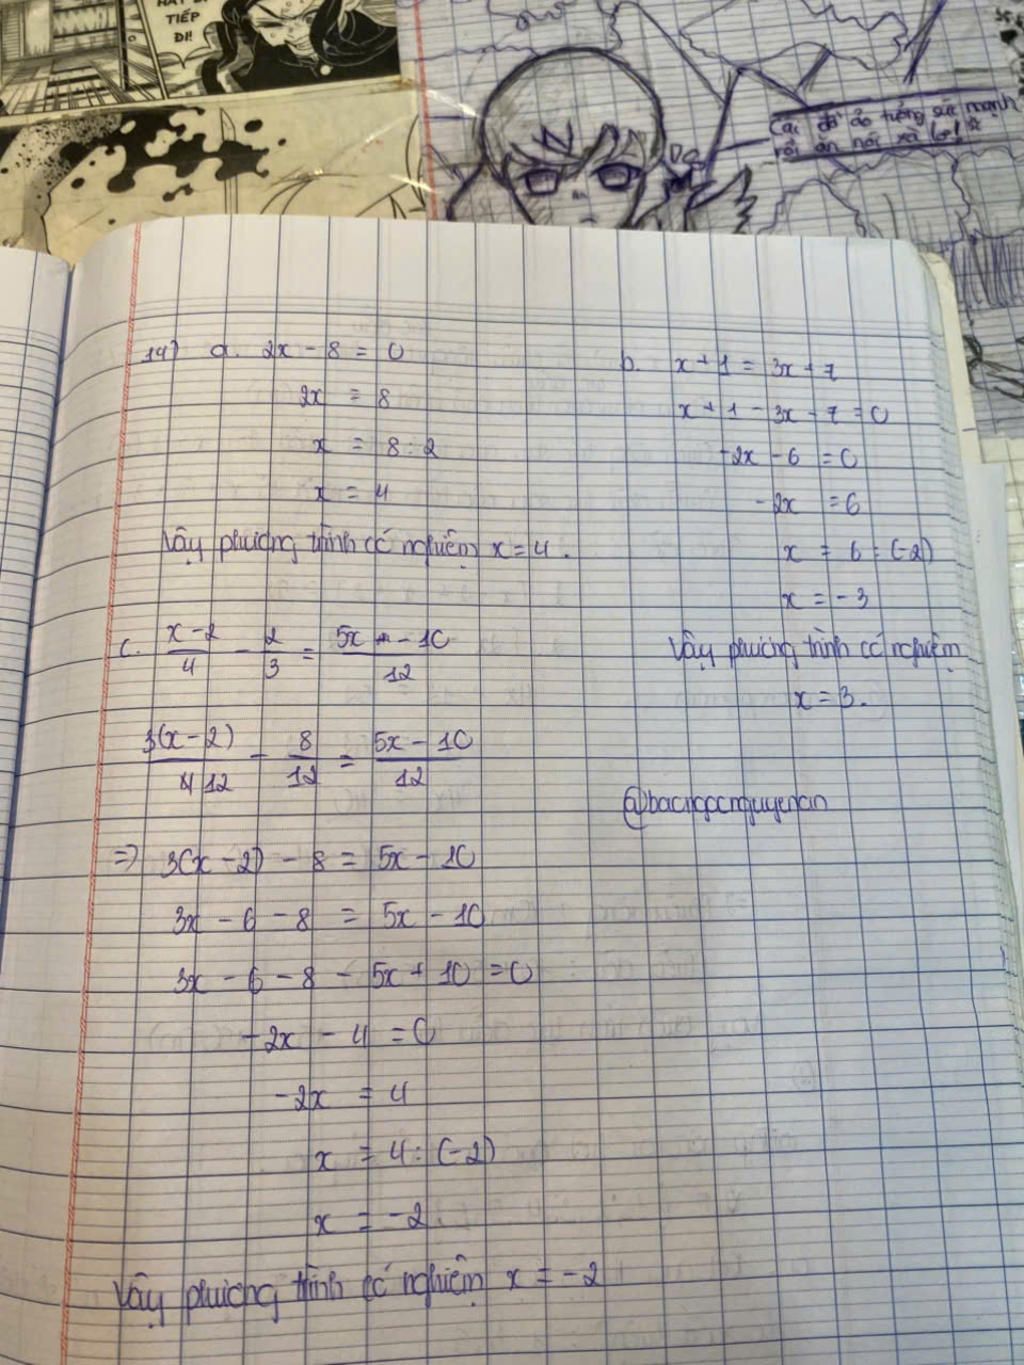 TIẾP
ĐI!
Cái đồ ảo tưởng sức mạnh
rồi ăn nói xà lơ!
14) a. 2x - 8 = 0
2x = 8
x = 8 : 2
x = 4
Vậy phương trình có nghiệm x = 4.
b. x + 1 = 3x + 7
x + 1 - 3x - 7 = 0
-2x - 6 = 0
-2x = 6
x = 6 : (-2)
x = -3
Vậy phương trình có nghiệm
x = 3.
c. x - 2 / 4 - 2 / 3 = 5x - 10 / 12
3(x - 2) / 12 - 8 / 12 = 5x - 10 / 12
@bacngocnguyenan
=> 3(x - 2) - 8 = 5x - 10
3x - 6 - 8 = 5x - 10
3x - 6 - 8 - 5x + 10 = 0
-2x - 4 = 0
-2x = 4
x = 4 : (-2)
x = -2
Vậy phương trình có nghiệm x = -2